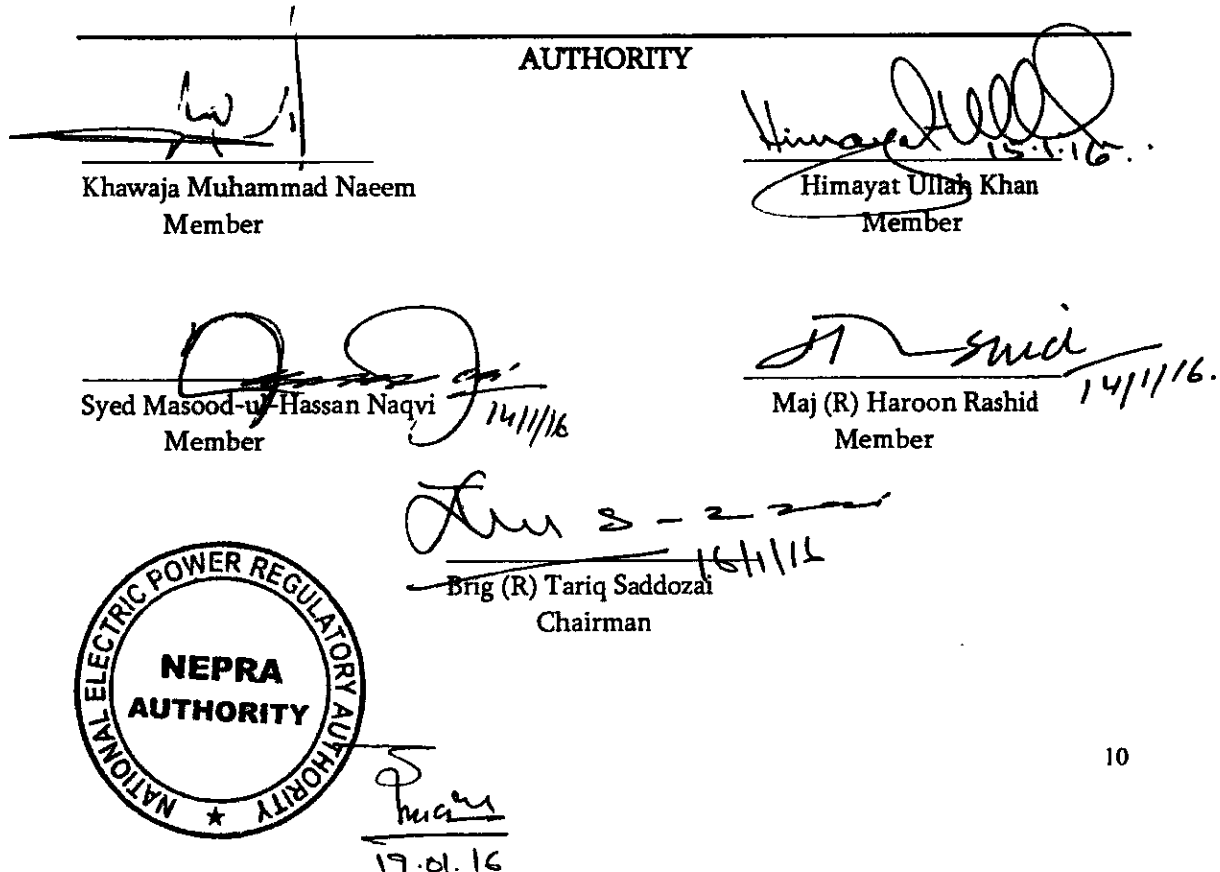 AUTHORITY
Khawaja Muhammad Naeem
Member
Himayat Ullah
15.1.16
Himayat Ullah Khan
Member
14/1/16
Syed Masood-ul-Hassan Naqvi
Member
14/1/16.
Maj (R) Haroon Rashid
Member
Brig (R) Tariq Saddozai
Chairman
NATIONAL ELECTRIC POWER REGULATORY AUTHORITY
NEPRA
AUTHORITY
10
19.01.16